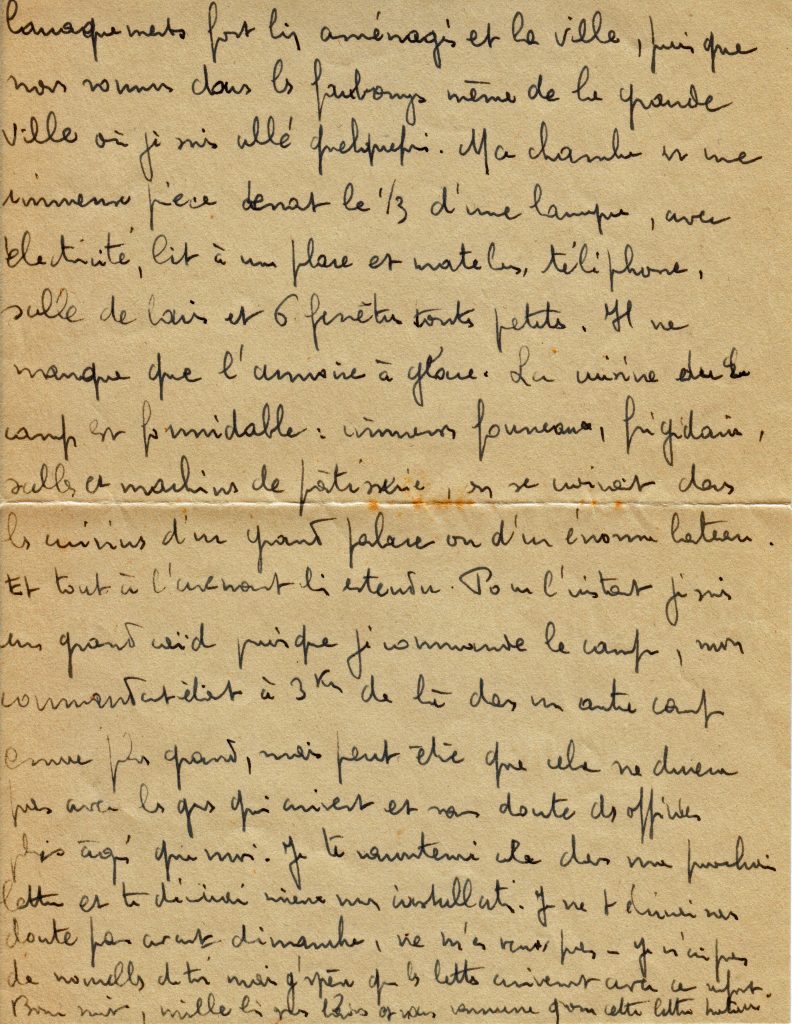 baraquements fort bien aménagés et la ville, puisque
nous sommes dans les faubourgs même de la grande
ville où je suis allé quelquefois. Ma chambre est une
immense pièce tenant le 1/3 d'une baraque, avec
électricité, lit à une place et matelas, téléphone,
salle de bains et 6 fenêtres toutes petites. Il ne
manque que l'armoire à glace. La cuisine du
camp est formidable : immenses fourneaux, frigidaire,
salles et machines de pâtisserie, on se croirait dans
les cuisines d'un grand palace ou d'un énorme bateau.
Et tout à l'avenant bien entendu. Pour l'instant je suis
un grand caïd puisque je commande le camp, mon
commandant étant à 3 Km de là dans un autre camp
encore plus grand, mais peut être que cela ne durera
pas avec les gens qui arrivent et sans doute des officiers
plus âgés que moi. Je te raconterai cela dans une prochaine
lettre et te décrirai mieux mes installations. Je ne t'écrirai sans
doute pas avant dimanche, ne m'en veux pas - je n'ai pas
de nouvelles de toi mais j'espère que les lettres arriveront avec ce
Bonne nuit, mille gros baisers cette lettre